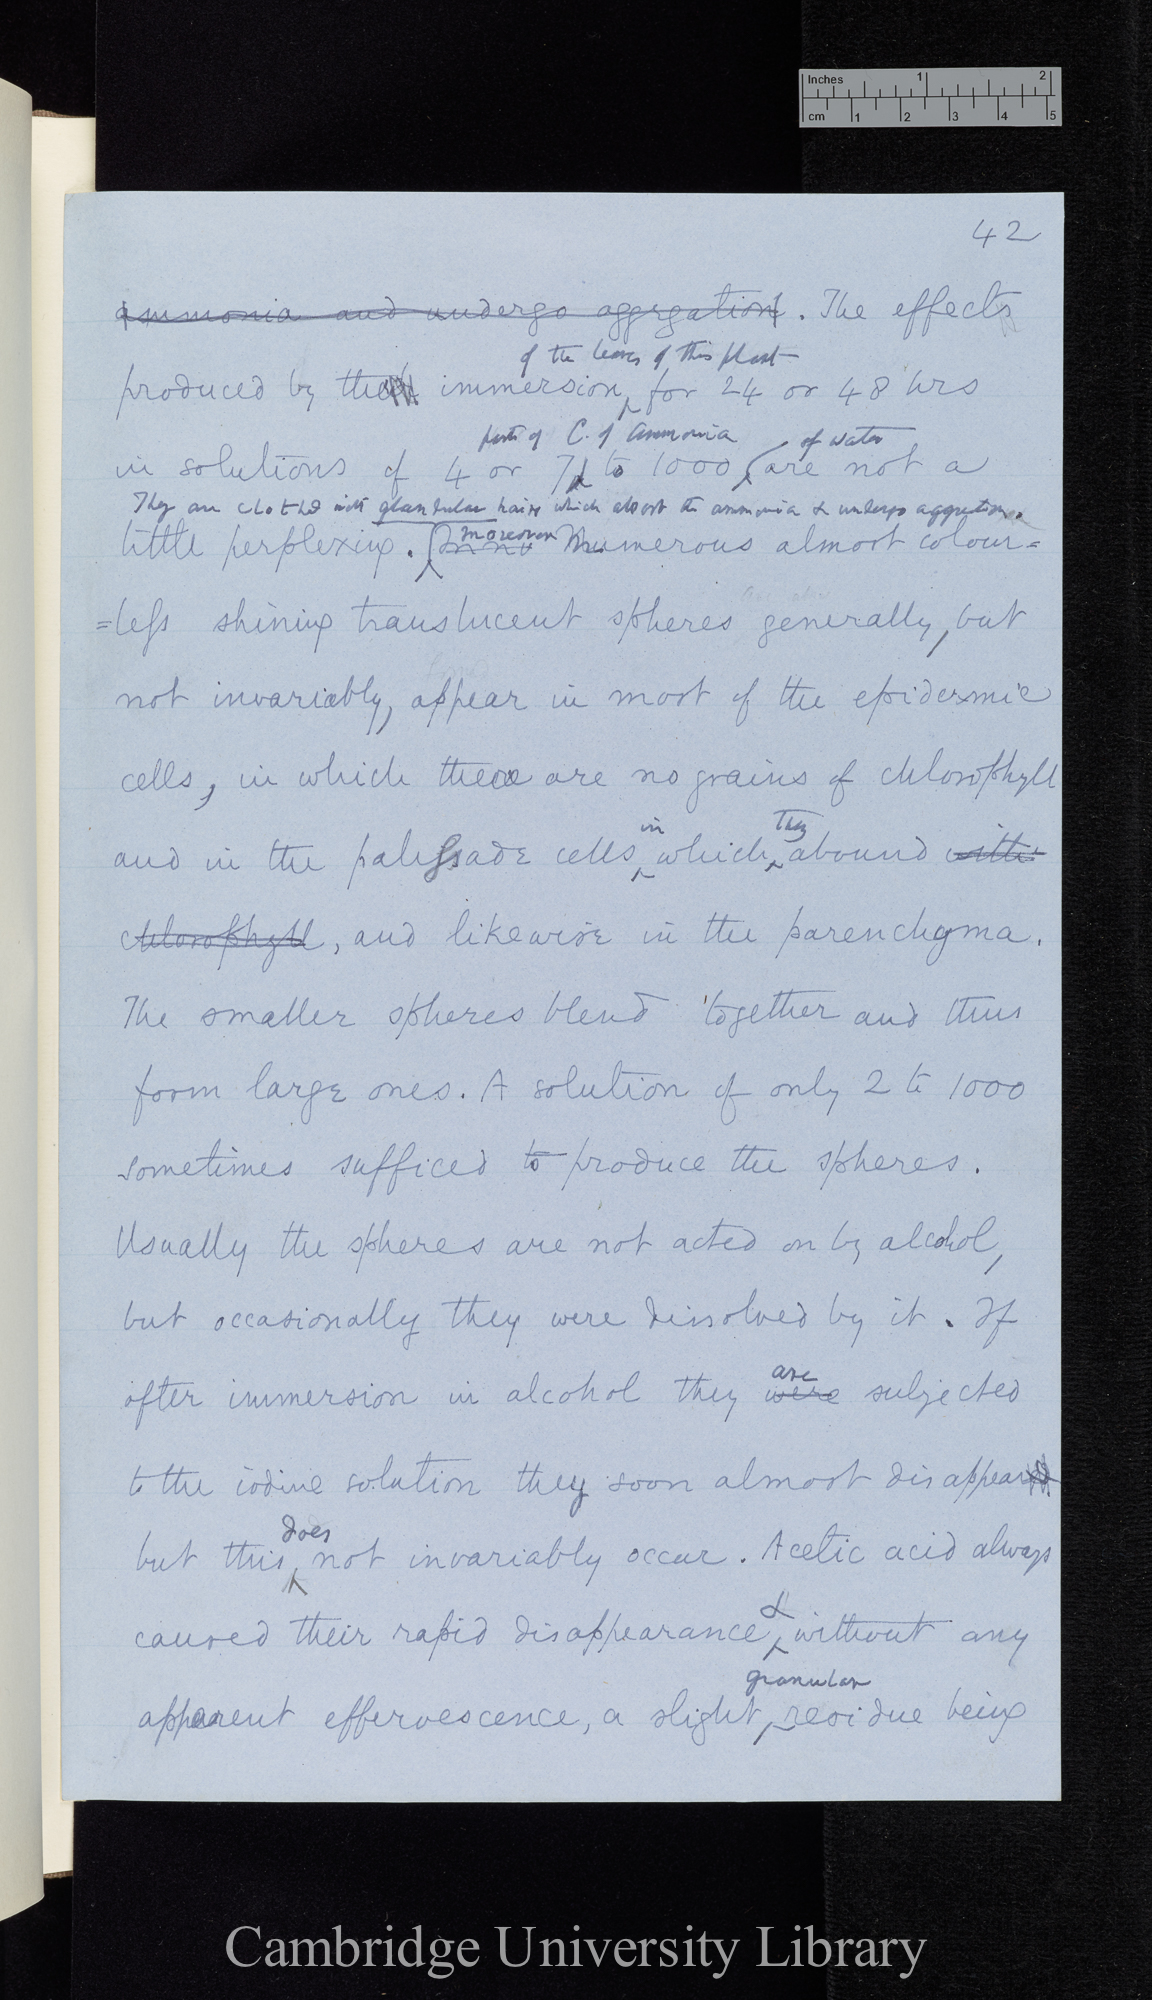 Inches 1 2
cm 1 2 3 4 5
42
ammonia and undergo aggregation. The effects
of the leaves of this plant
produced by the immersion, for 24 or 48 hrs
parts of C. of Ammonia of water
in solutions of 4 or 7 to 1000, are not a
They are clothed with glandular hairs which absorb the ammonia & undergo aggregation.
little perplexing. moreover numerous almost colour=
=less shining translucent spheres generally, but
not invariably, appear in most of the epidermic
cells, in which there are no grains of chlorophyll
in they
and in the palissade cells which abound with
chlorophyll, and likewise in the parenchyma.
The smaller spheres blend together and thus
form large ones. A solution of only 2 to 1000
sometimes sufficed to produce the spheres.
Usually the spheres are not acted on by alcohol,
but occasionally they were dissolved by it. If
are
after immersion in alcohol they were subjected
to the iodine solution they soon almost disappear
does
but this not invariably occur. Acetic acid always
&
caused their rapid disappearance, without any
granular
apparent effervescence, a slight residue being
Cambridge University Library